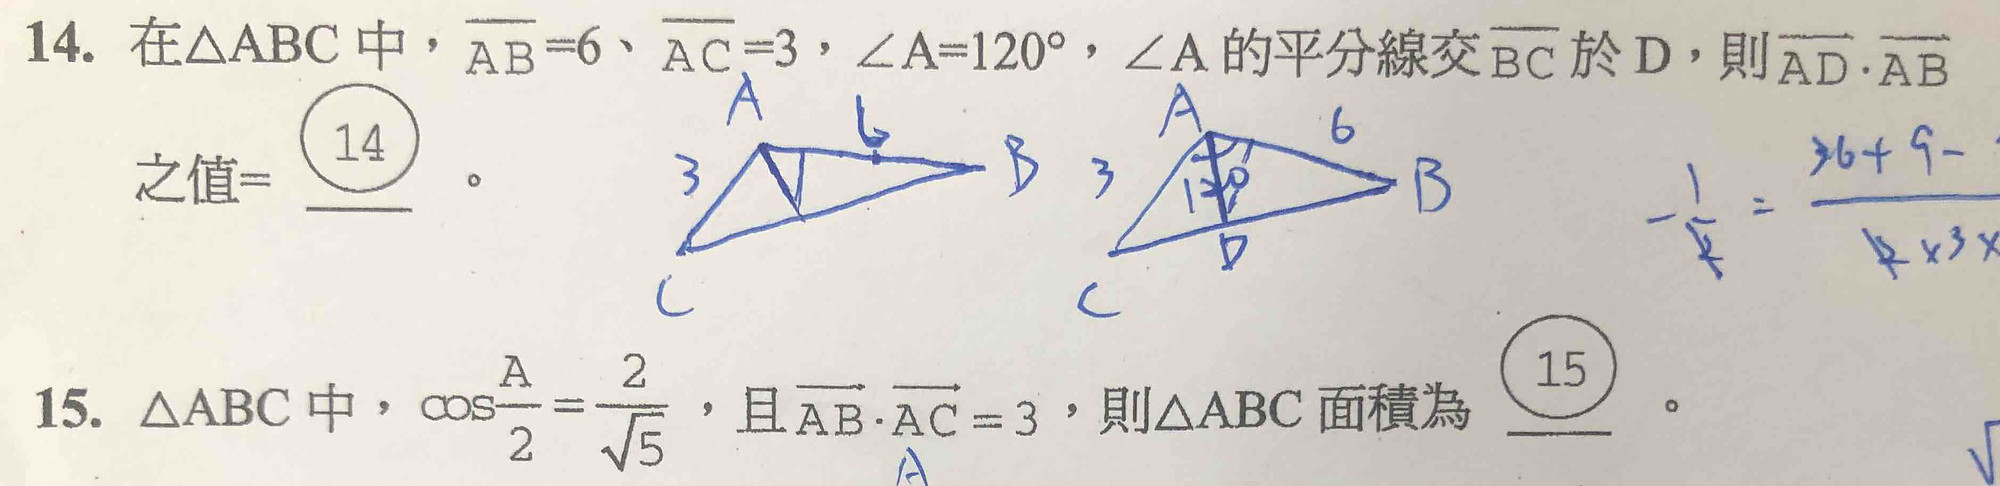 14. 在△ABC 中，AB=6、AC=3，∠A=120°，∠A 的平分線交 BC 於 D，則 AD·AB
之值= 14 。
A 6 B 3 C
A 6 B 3 120 D C
-1/2 = 36+9- / 2×3×
15. △ABC 中，cos A/2 = 2/√5，且 AB·AC = 3，則△ABC 面積為 15 。
A
√